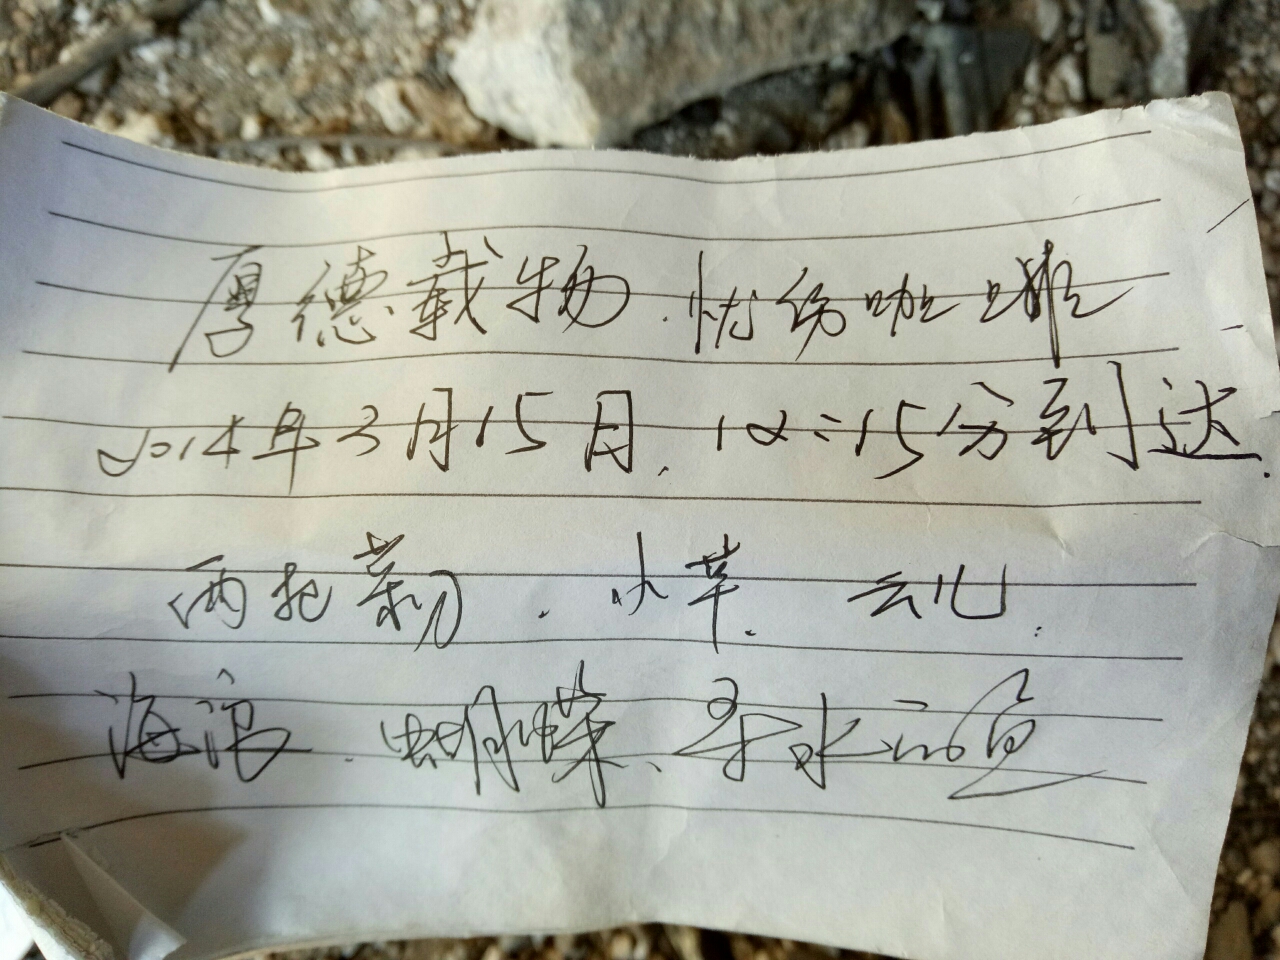 厚德载物.忧伤咖啡
2014年3月15日.12:15分到达.
两把菊.小草.云儿.
海浪.蝴蝶、水